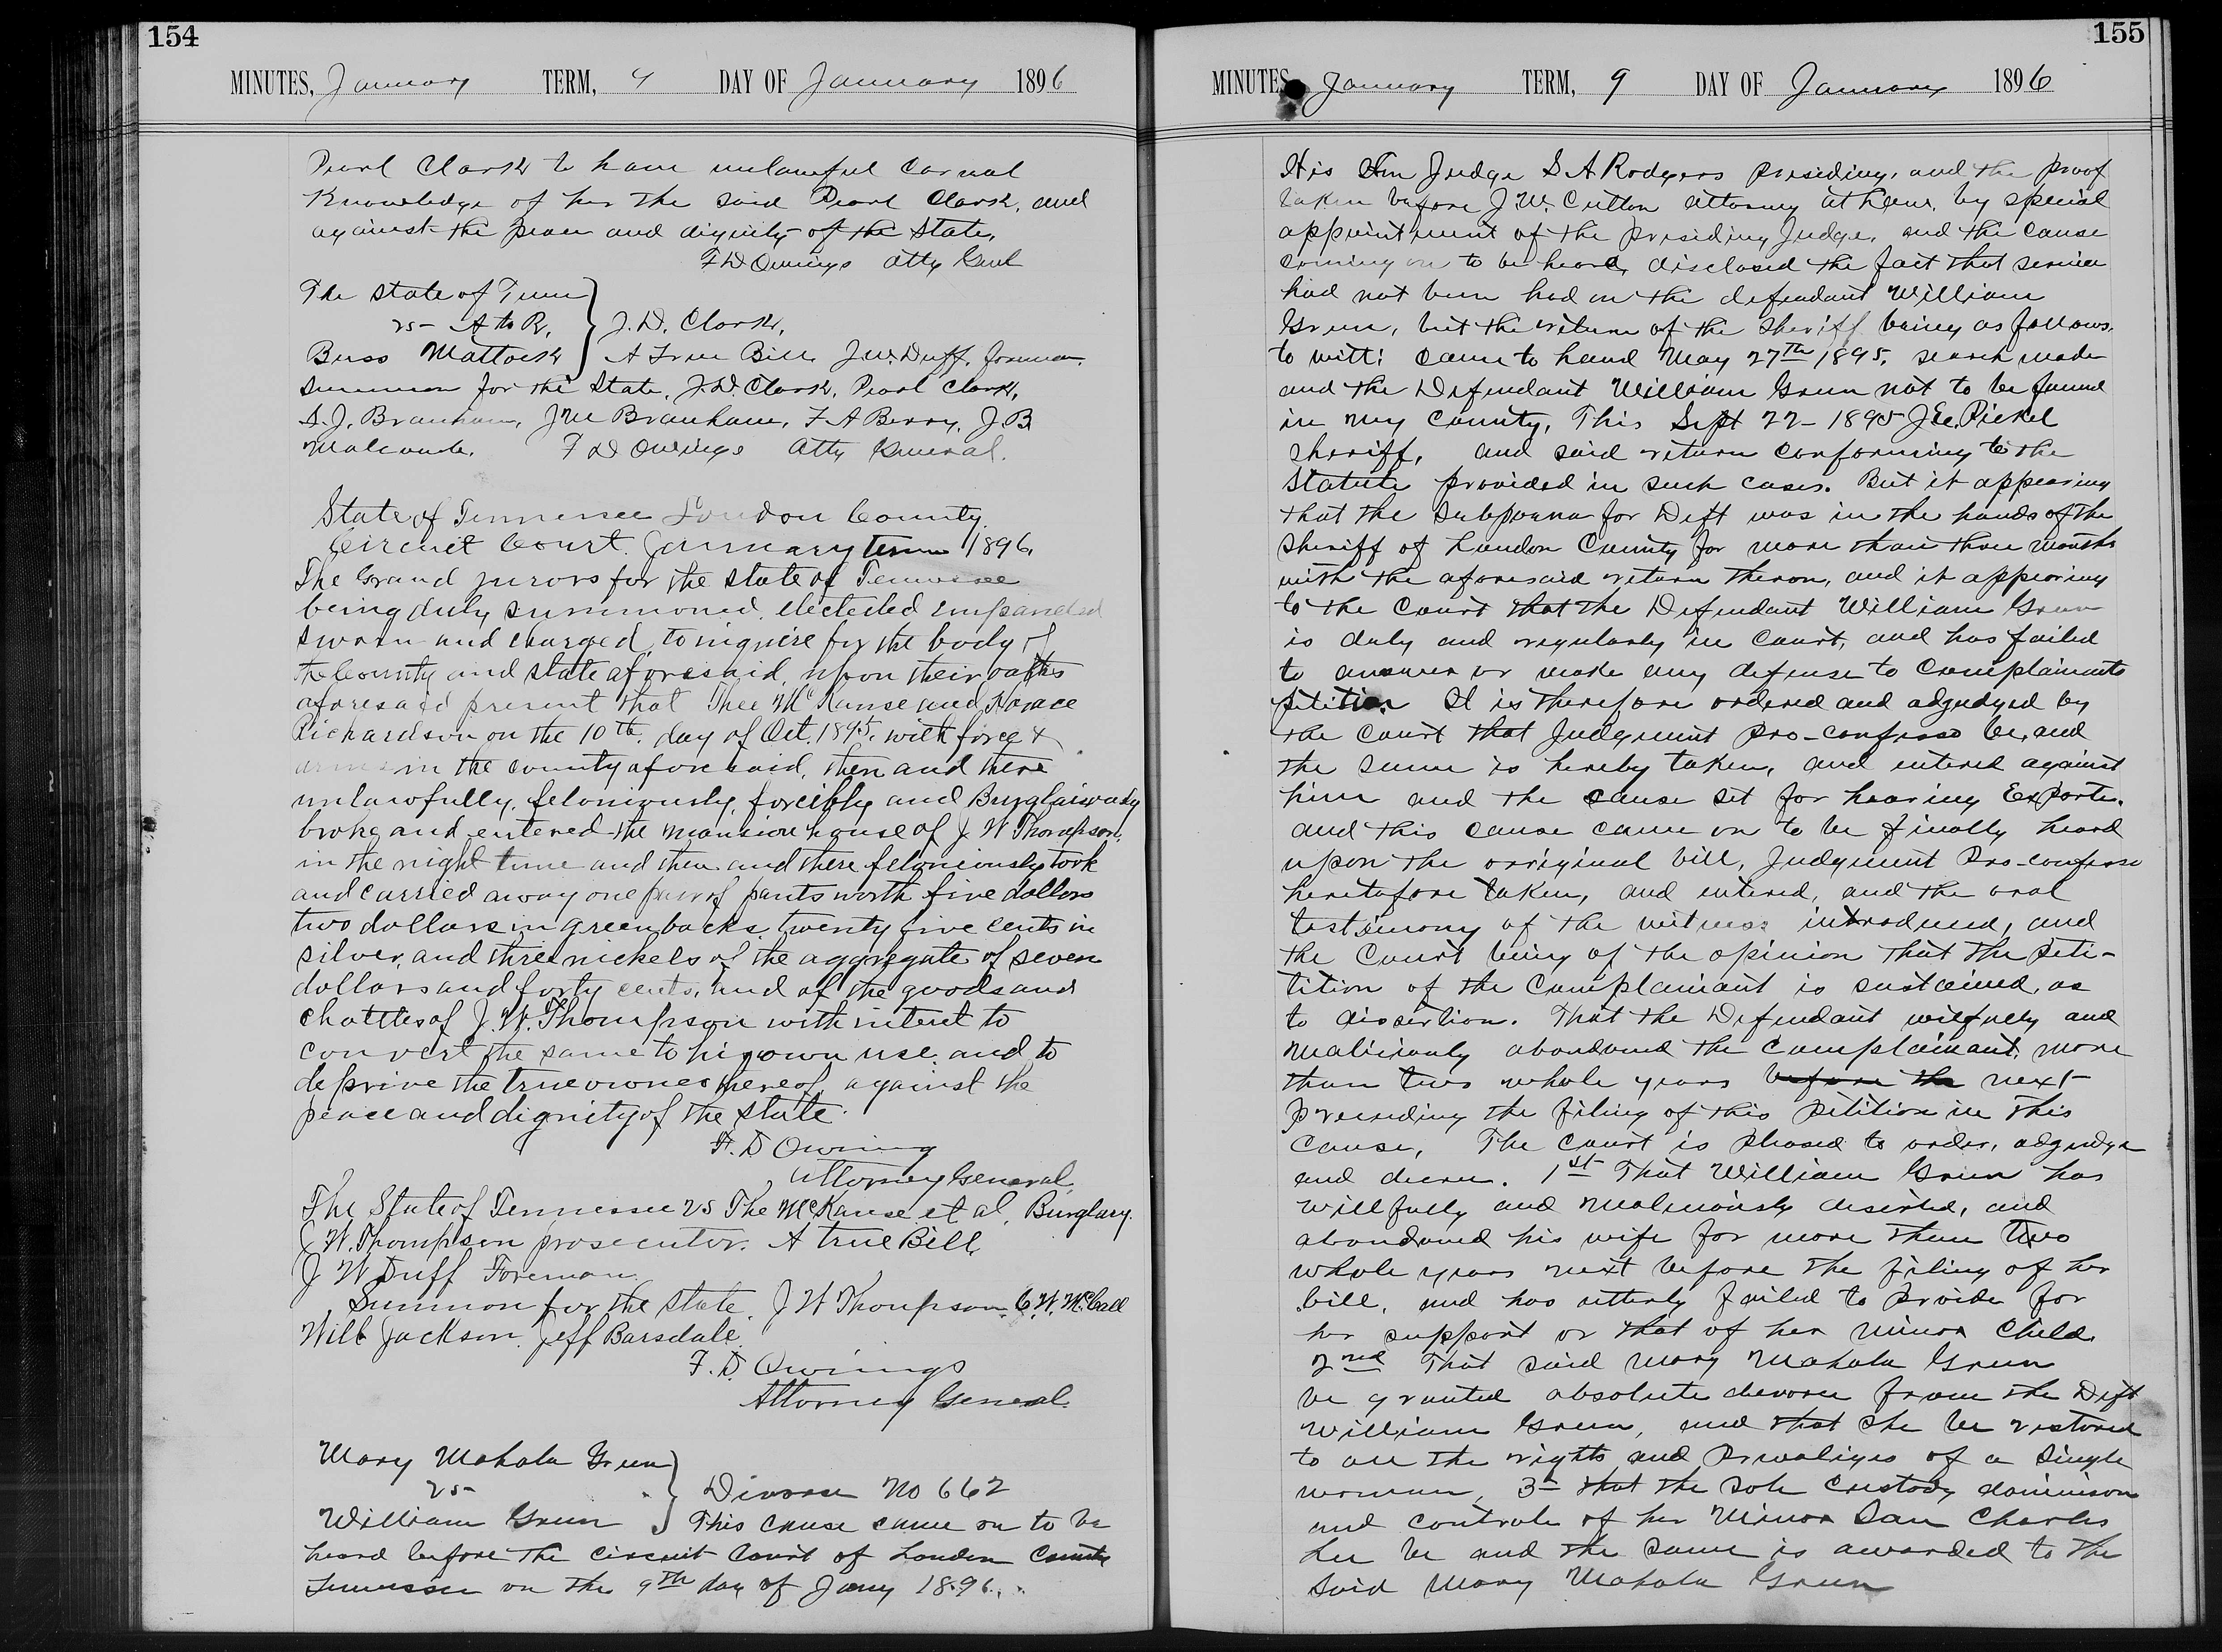 154
MINUTES, January TERM, 9 DAY OF January 1896
Pearl Clark to have unlawful carnal
Knowledge of her the said Pearl Clark, and
against the peace and dignity of the State,
F D Owings Atty Genl
The State of Tenn
vs A to R, J. D. Clark,
Buss Mattock A True Bill Jw. Duff. foreman.
Summon for the State, J. D. Clark, Pearl Clark,
S. J. Branham, J M Branham, F A Berry, J B
F D Owings Atty General.
State of Tennessee Loudon County.
Circuit Court. January term 1896.
The Grand jurors for the State of Tennessee
being duly summoned, elected empaneled
sworn and charged, to inquire for the body of
the County and State aforesaid, upon their oathes
aforesaid present that Thee McKanse and Horace
Richardson on the 10th. day of Oct. 1895. with force &
arms in the county aforesaid, then and there
unlawfully, feloniously, forcibly and Burglariously
broke and entered the mansion house of J. W Thompson,
in the night time and then and there feloniously took
and carried away one pair of pants worth five dollars
two dollars in greenbacks, twenty five cents in
silver, and three nickels of the aggregate of seven
dollars and forty cents, and of the goods and
chattles of J. W. Thompson with intent to
convert the same to his own use, and to
deprive the true owner thereof, against the
peace and dignity of the state.
F. D Owing
Attorney General,
The State of Tennessee vs The McKanse et al, Burglary.
J W. Thompson prosecutor. A true Bill,
J W Duff Foreman.
Summon for the state. J W Thompson. C. W. McCall
Will Jackson. Jeff Barsdale.
F. D. Owings
Attorney General.
Mary Mahala Green
vs Divorce No 662
William Green This cause came on to be
heard before the Circuit Court of Loudon County
Tennessee on the 9th day of Jany 1896.
155
MINUTES, January TERM, 9 DAY OF January 1896
His Hon Judge S A Rodgers presiding, and the proof
taken before J. W. Cutton attorney at Law, by special
appointment of the presiding Judge, and the cause
coming on to be heard, disclosed the fact that service
had not been had on the defendant William
Green, but the return of the Sheriff being as follows.
to witt: Came to hand May 27th 1895, search made
and the Defendant William Green not to be found
in my County, This Sept 22 - 1895 J. E. Pickel
Sheriff, and said return conforming to the
Statute provided in such cases. But it appearing
that the subpoena for Deft was in the hands of the
Sheriff of Loudon County for more than three months
with the aforesaid return theron, and it appearing
to the Court that the Defendant William Green
is duly and regularly in Court, and has failed
to answer or make any defense to Complainants
petition It is therefore ordered and adjudged by
the Court that Judgment pro-confesso be, and
the same is hereby taken, and entered against
him and the cause set for hearing Exparte.
and this cause came on to be finally heard
upon the original bill, Judgment Pro-confesso
heretofore taken, and entered, and the oral
testimony of the witness introduced, and
the Court being of the opinion that the peti-
tition of the Complainant is sustained, as
to dissertion. That the Defendant wilfully and
maliciously abandoned the Complainant, more
than two whole years before the next
preceeding the filing of this petition in this
cause, The Court is pleased to order, adgudge
and decree. 1st That William Green has
willfully and maliciously deserted, and
abandoned his wife for more than two
whole years next before the filing of her
bill, and has utterly failed to provide for
her support or that of her minor child.
2nd That said Mary Mahala Green
be granted absolute devorce from the Deft
William Green, and that she be restored
to all the rights and privaliges of a single
woman, 3- that the sole Custody dominion
and controle of her Minor Son Charles
Lee be and the same is awarded to the
said Mary Mahala Green